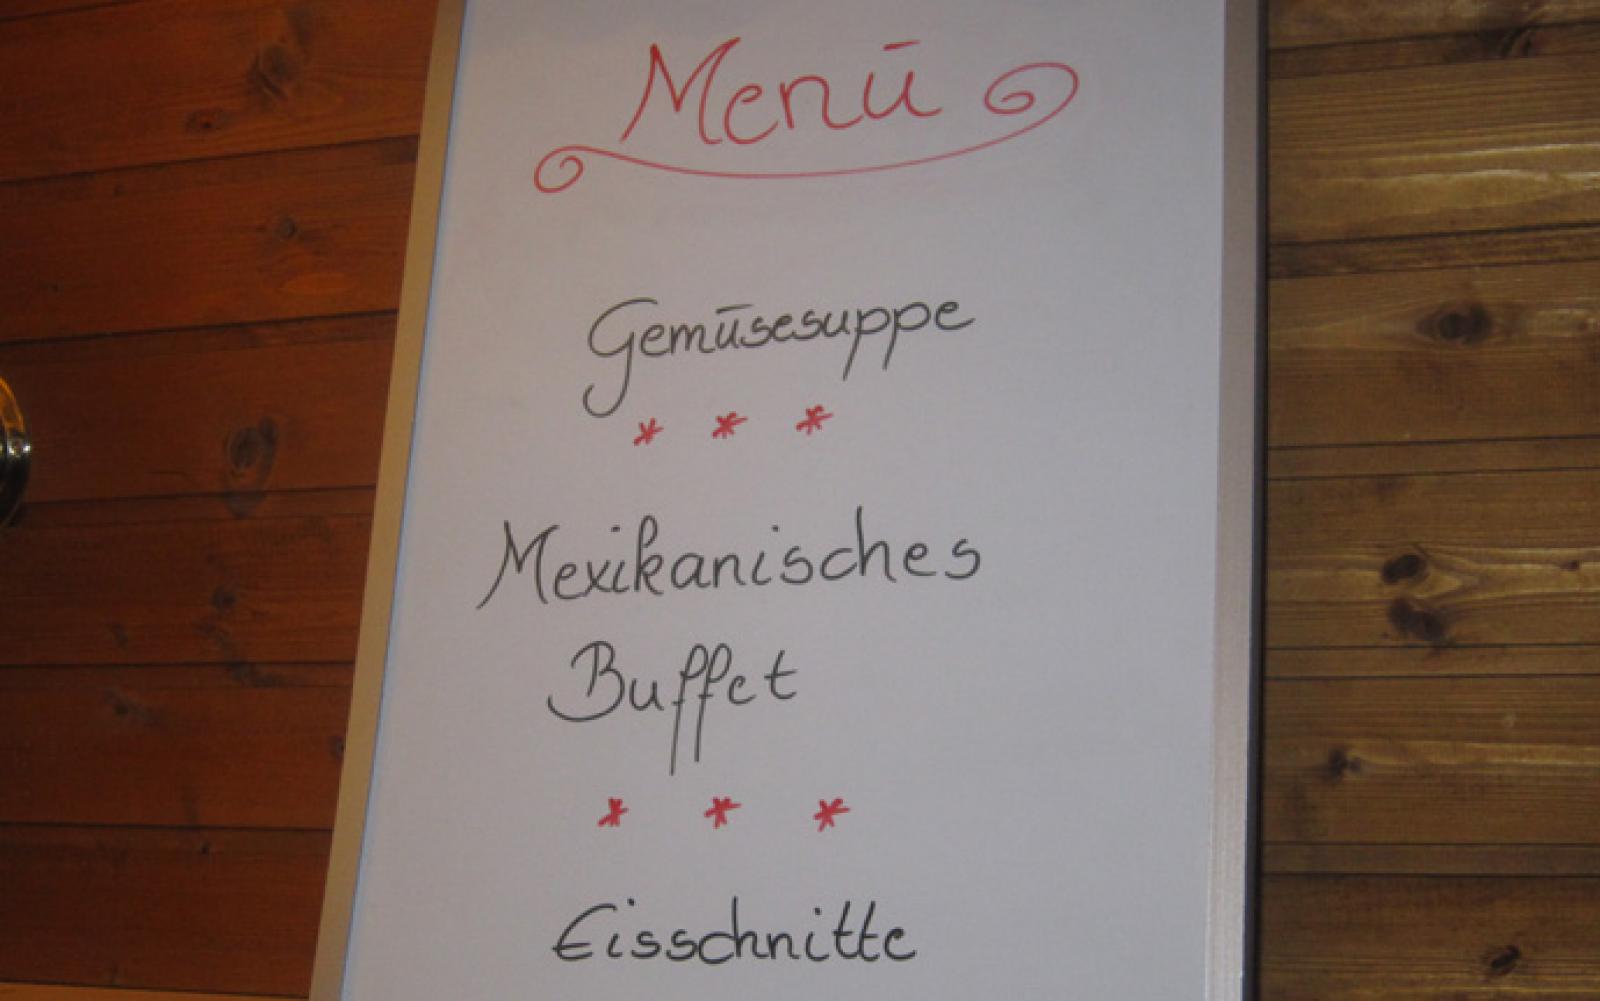 Menü
Gemüsesuppe
* * *
Mexikanisches
Buffet
* * *
Eisschnitte